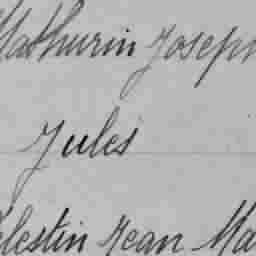 Mathurin Joseph
Jules
Célestin Jean Ma